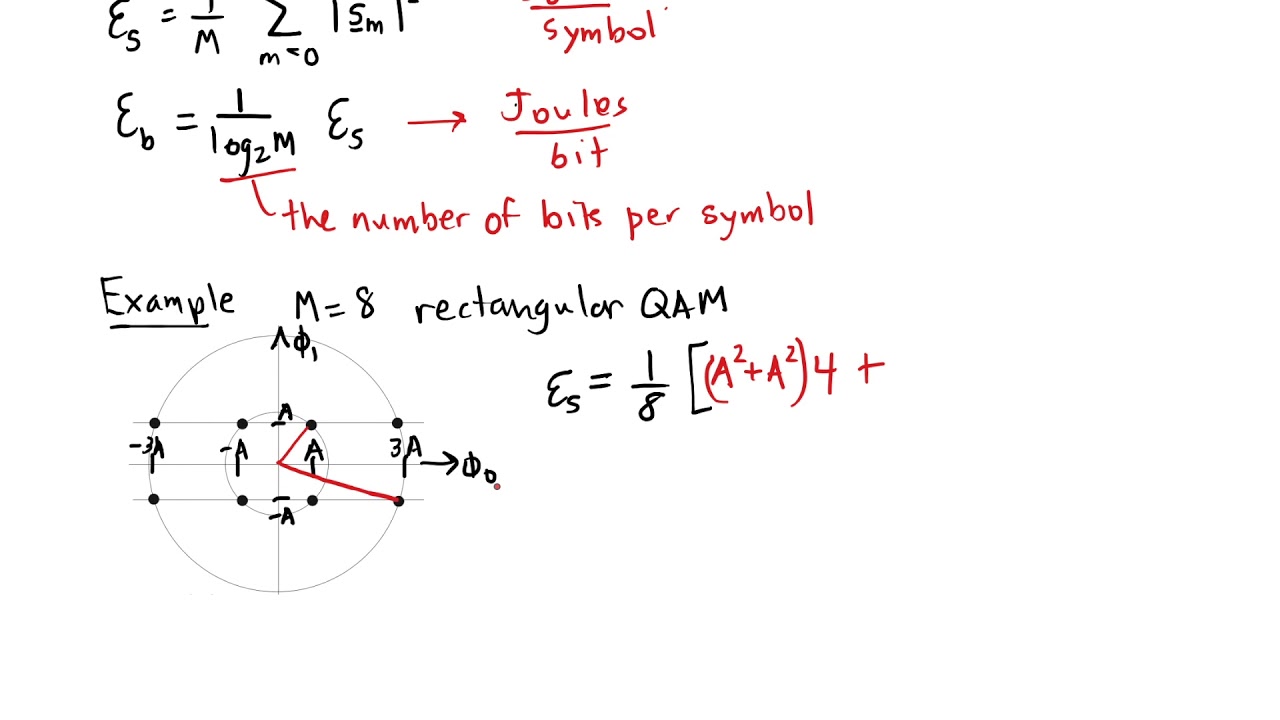 ℰs = 1/M Σ m=0 |sm|² symbol
ℰb = 1/log₂M ℰs → Joules/bit
the number of bits per symbol
Example M = 8 rectangular QAM
ϕ₁
ℰs = 1/8 [(A²+A²)4 +
A
-3A -A A 3A → ϕ₀
-A